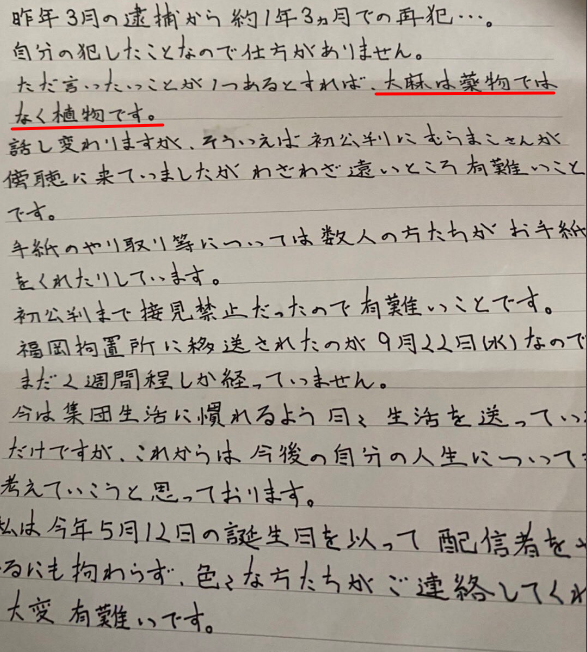 昨年3月の逮捕から約1年3ヵ月での再犯…。
自分の犯したことなので仕方がありません。
ただ言いたいことが1つあるとすれば、大麻は薬物では
なく植物です。
話し変わりますが、そういえば初公判にむらまこさんが
傍聴に来ていましたがわざわざ遠いところ有難いこと
です。
手紙のやり取り等については数人の方たちがお手紙
をくれたりしています。
初公判まで接見禁止だったので有難いことです。
福岡拘置所に移送されたのが9月22日(水)なので
まだ2週間程しか経っていません。
今は集団生活に慣れるよう日々生活を送ってい
だけですが、これからは今後の自分の人生について
考えていこうと思っております。
私は今年5月12日の誕生日を以って配信者を
るにも拘わらず、色々な方たちがご連絡してくれ
大変有難いです。